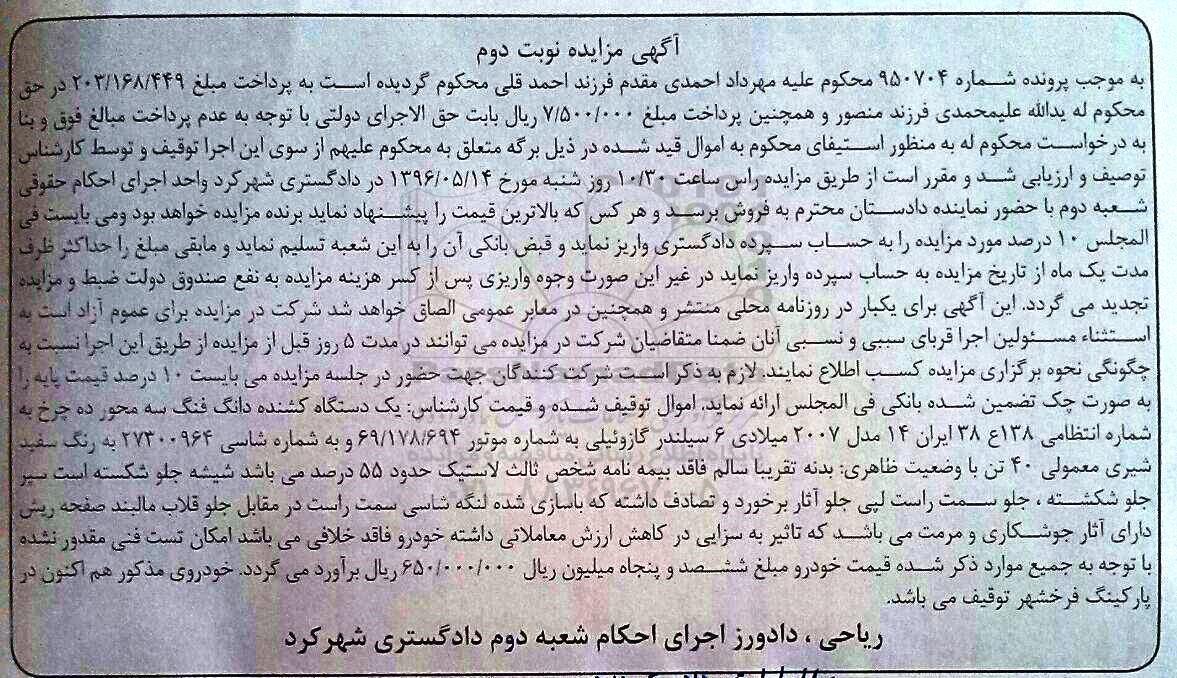 آگهی مزایده نوبت دوم
به موجب پرونده شماره ۹۵۰۷۰۴ محکوم علیه مهرداد احمدی مقدم فرزند احمد قلی محکوم گردیده است به پرداخت مبلغ ۲۰۳/۱۶۸/۴۴۹ در حق
محکوم له یدالله علیمحمدی فرزند منصور و همچنین پرداخت مبلغ ۷/۵۰۰/۰۰۰ ریال بابت حق الاجرای دولتی با توجه به عدم پرداخت مبالغ فوق و بنا
به درخواست محکوم له به منظور استیفای محکوم به اموال قید شده در ذیل برگه متعلق به محکوم علیهم از سوی این اجرا توقیف و توسط کارشناس
توصیف و ارزیابی شد و مقرر است از طریق مزایده راس ساعت ۱۰/۳۰ روز شنبه مورخ ۱۳۹۶/۰۵/۱۴ در دادگستری شهرکرد واحد اجرای احکام حقوقی
شعبه دوم با حضور نماینده دادستان محترم به فروش برسد و هر کس که بالاترین قیمت را پیشنهاد نماید برنده مزایده خواهد بود ومی بایست فی
المجلس ۱۰ درصد مورد مزایده را به حساب سپرده دادگستری واریز نماید و قبض بانکی آن را به این شعبه تسلیم نماید و مابقی مبلغ را حداکثر ظرف
مدت یک ماه از تاریخ مزایده به حساب سپرده واریز نماید در غیر این صورت وجوه واریزی پس از کسر هزینه مزایده به نفع صندوق دولت ضبط و مزایده
تجدید می گردد. این آگهی برای یکبار در روزنامه محلی منتشر و همچنین در معابر عمومی الصاق خواهد شد شرکت در مزایده برای عموم آزاد است به
استثناء مسئولین اجرا قربای سببی و نسبی آنان ضمنا متقاضیان شرکت در مزایده می توانند در مدت ۵ روز قبل از مزایده از طریق این اجرا نسبت به
چگونگی نحوه برگزاری مزایده کسب اطلاع نمایند. لازم به ذکر است شرکت کنندگان جهت حضور در جلسه مزایده می بایست ۱۰ درصد قیمت پایه را
به صورت چک تضمین شده بانکی فی المجلس ارائه نماید. اموال توقیف شده و قیمت کارشناس: یک دستگاه کشنده دانگ فنگ سه محور ده چرخ به
شماره انتظامی ۱۳۸ع ۳۸ ایران ۱۴ مدل ۲۰۰۷ میلادی ۶ سیلندر گازوئیلی به شماره موتور ۶۹/۱۷۸/۶۹۴ و به شماره شاسی ۲۷۳۰۰۹۶۴ به رنگ سفید
شیری معمولی ۴۰ تن با وضعیت ظاهری: بدنه تقریبا سالم فاقد بیمه نامه شخص ثالث لاستیک حدود ۵۵ درصد می باشد شیشه جلو شکسته است سپر
جلو شکشته ، جلو سمت راست لپی جلو آثار برخورد و تصادف داشته که باسازی شده لنگه شاسی سمت راست در مقابل جلو قلاب مالبند صفحه ریش
دارای آثار جوشکاری و مرمت می باشد که تاثیر به سزایی در کاهش ارزش معاملاتی داشته خودرو فاقد خلافی می باشد امکان تست فنی مقدور نشده
با توجه به جمیع موارد ذکر شده قیمت خودرو مبلغ ششصد و پنجاه میلیون ریال ۶۵۰/۰۰۰/۰۰۰ ریال برآورد می گردد. خودروی مذکور هم اکنون در
پارکینگ فرخشهر توقیف می باشد.
ریاحی ، دادورز اجرای احکام شعبه دوم دادگستری شهرکرد